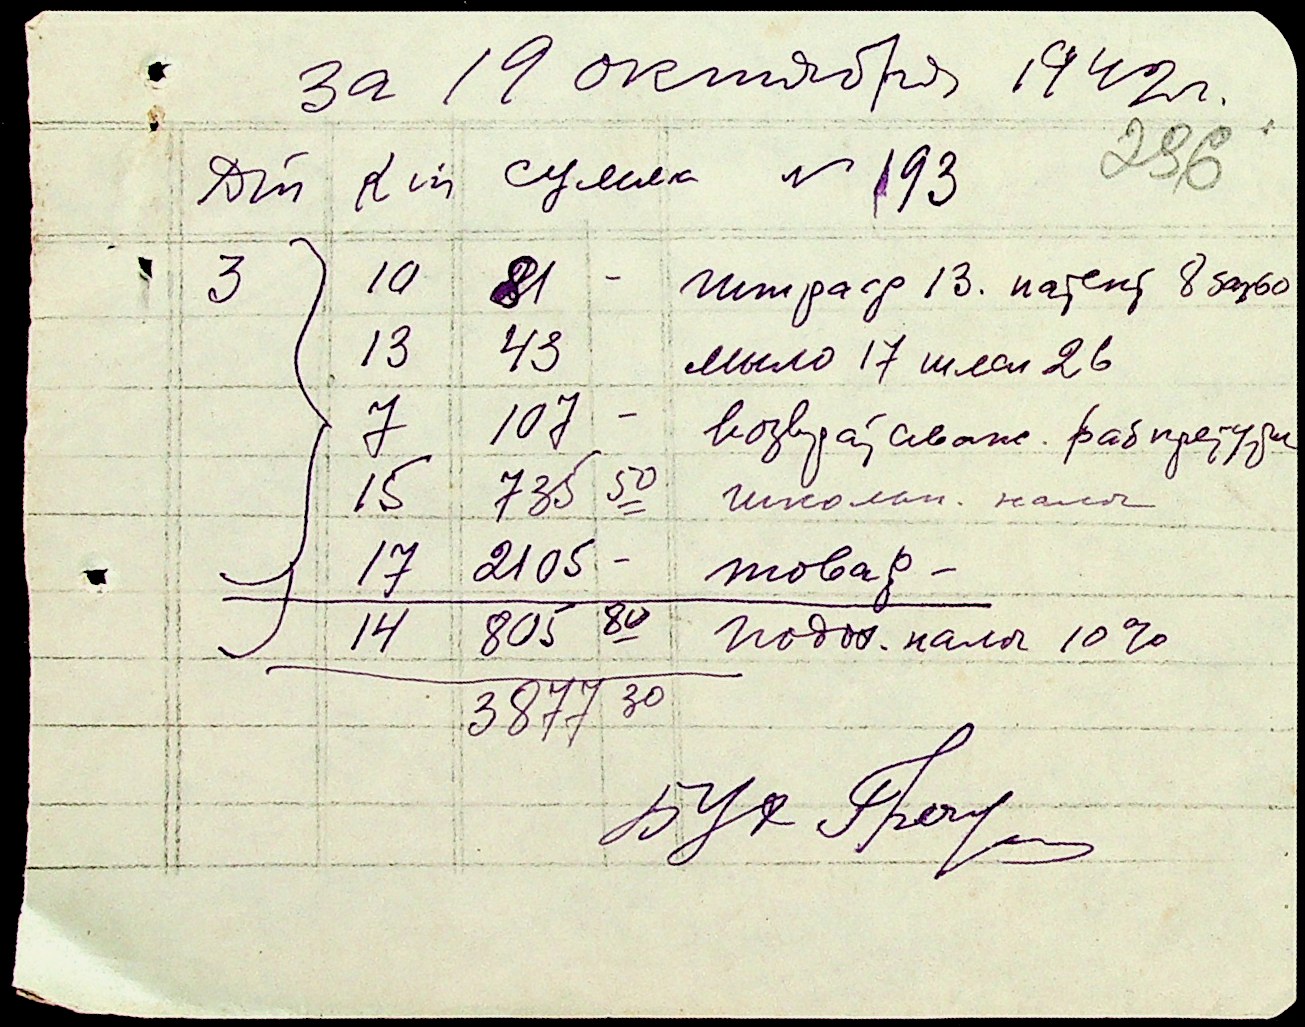 за 19 октября 1942г.
296
Дт Кт сумма № 193
3 10 81 - штраф 13. патент 8 базо
13 43 мыло 17 шлам 26
7 107 - возврат аванс.
15 735 50 школьн. налог
17 2105 - товар -
14 805 80 подох. налог 10%
3877 30
Бух